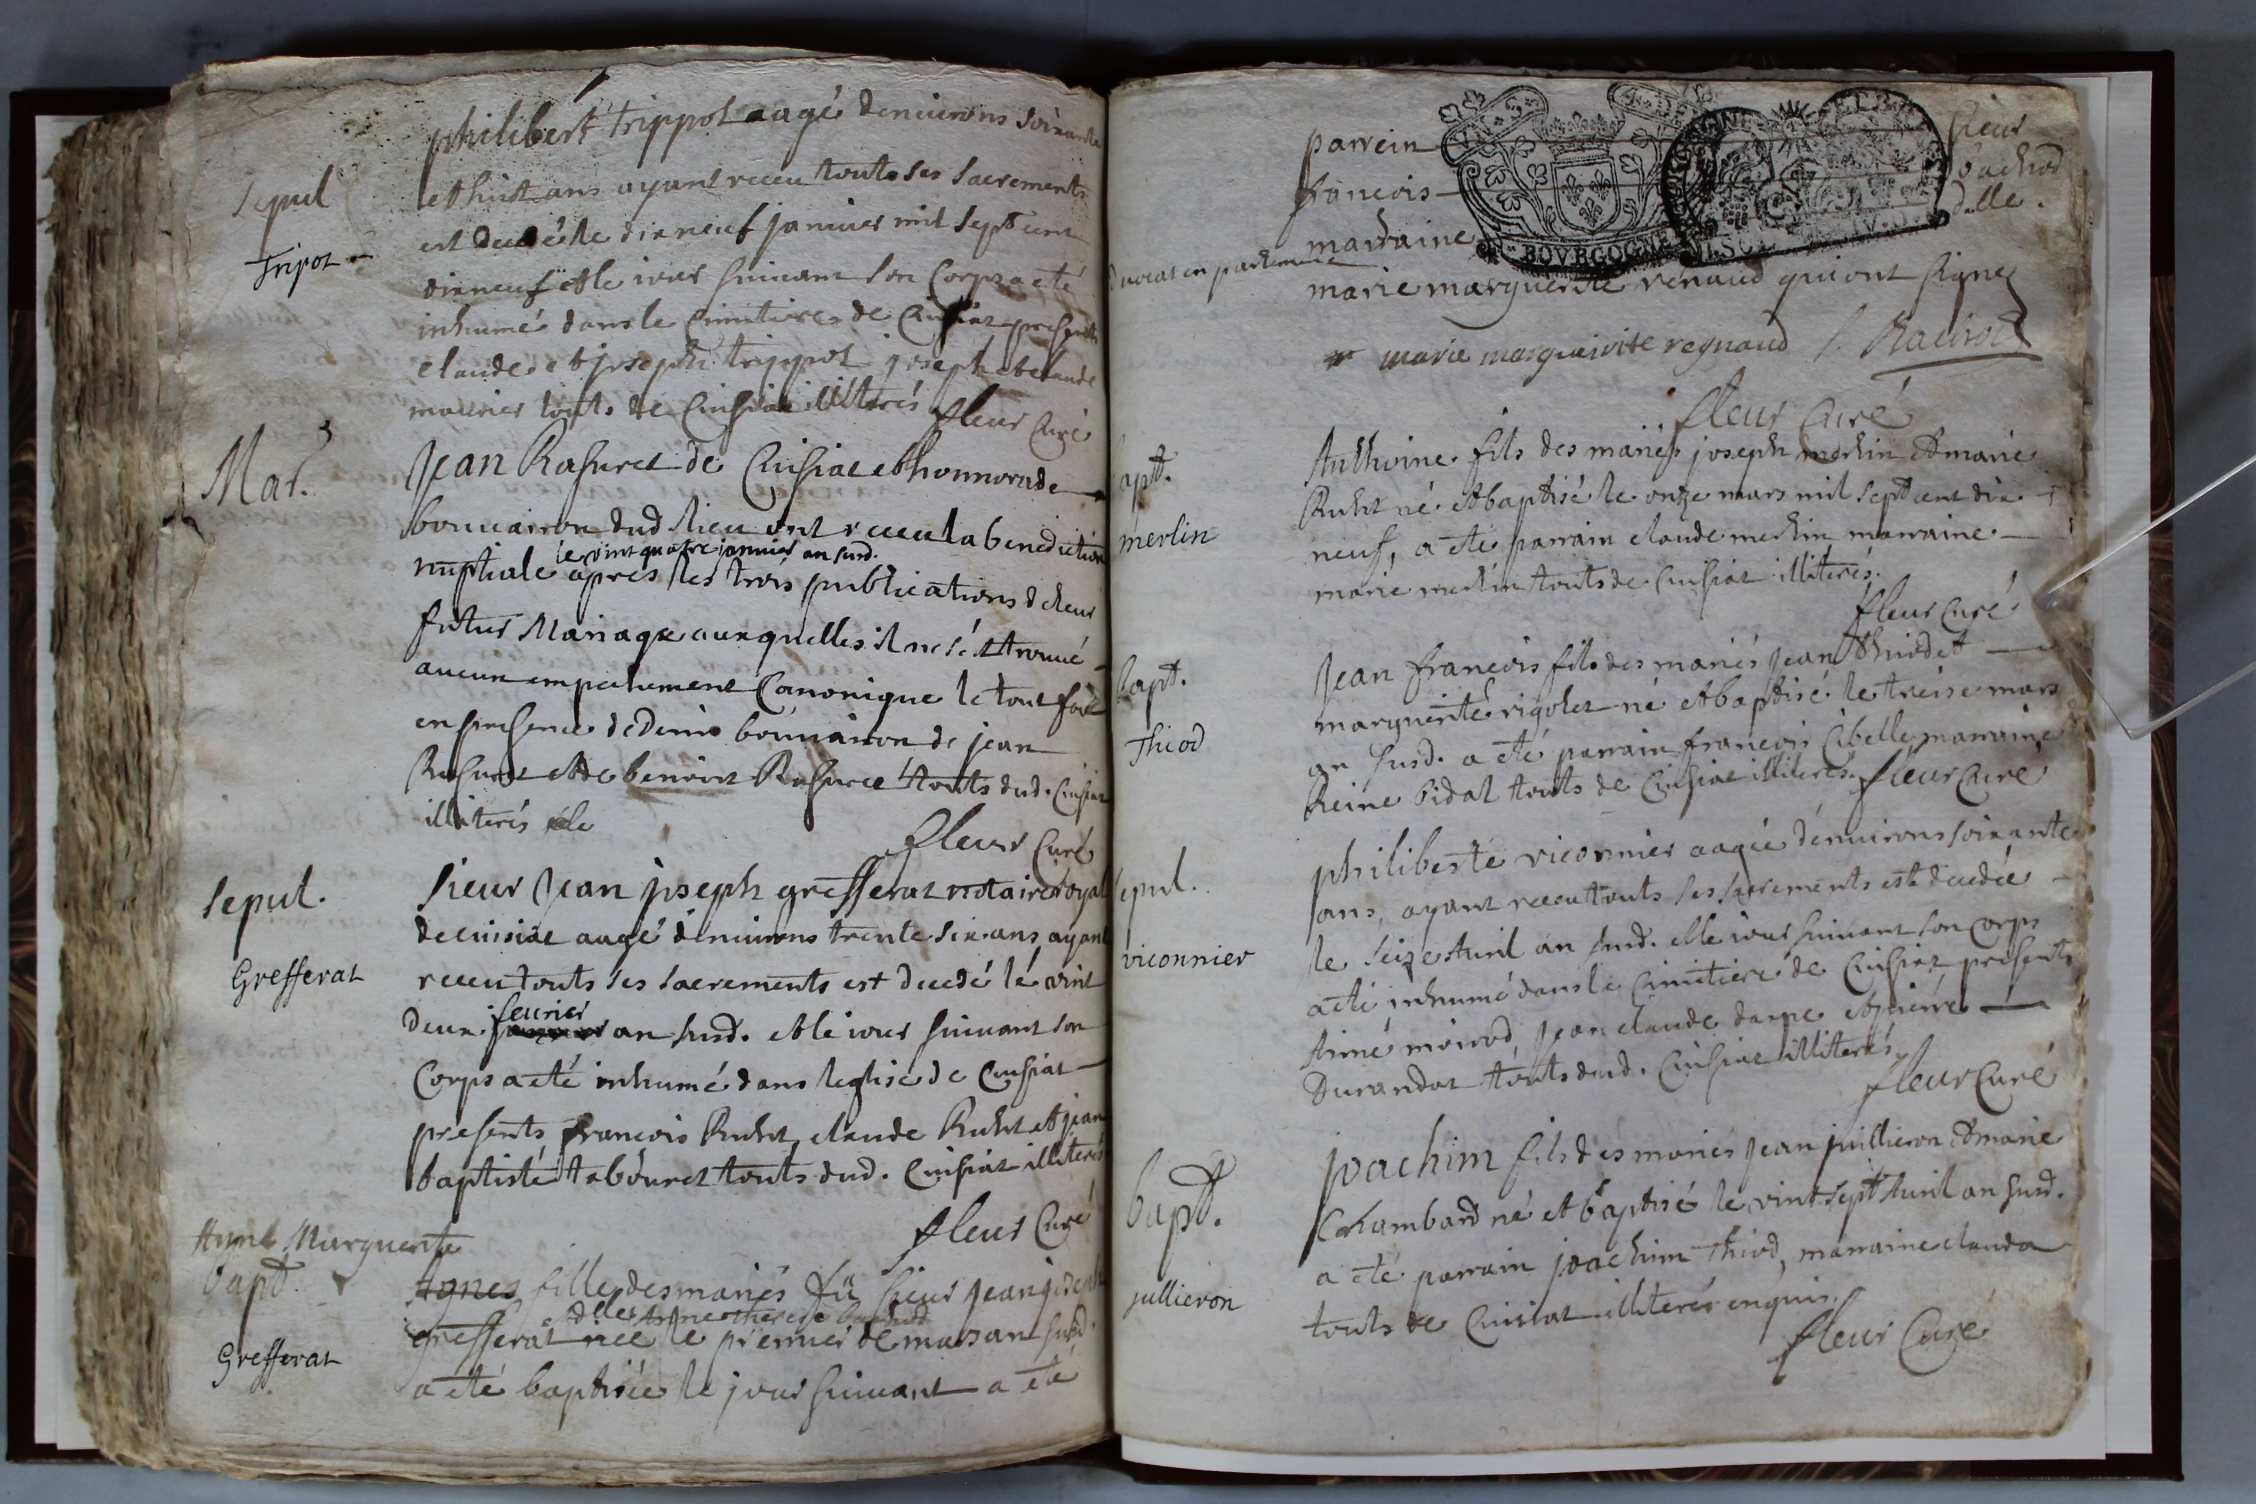 philibert trippot aagé denuirons soixante
sepul
et huit ans ayant receu touts ses sacrements
Tripot
est decedé le dixneuf januier mil sept cent
dixneuf et le iour suiuant son corps a eté
inhumé dans le cimitiere de Cuisiat presents
claude et joseph trippot joseph et claude
mounier touts de Cuisiat illiterés
fleur Curé
Mar.
Jean Rasuret de Cuisiat et honnorade
bouuairon dud lieu ont receu la benediction
le vint quatre januier an susd.
nuptiale apres les trois publications de leur
futur Mariage auxquelles il ne s'est trouué
aucun empechement Canonique le tout fait
en presence de Denis bouuairon de jean
Rasuret et de benoist Rasuret touts dud. Cuisiat
illiterés
fleur Curé
Sepul.
Grefferat
Sieur Jean joseph grefferat notaire royal
de cuisiat aagé denuirons trente six ans ayant
receu touts ses sacrements est decedé le vint
feurier
deux januier an susd. et le iour suiuant son
Corps a eté inhumé dans leglise de Cuisiat
presents francois Ruht, claude Ruht et jean
baptiste tabouret touts dud. Cuisiat illiterés
fleur Curé
Marguerite
bapt.
Grefferat
Agnes fille des mariés sieur Jean joseph
et dlle
grefferat née le premier de mars an susd.
a eté baptisée le jour suiuant a eté
parrein sieur
francois
marraine dlle.
auocat en parlement
marie marguerite renaud qui ont signé
marie marguerite regnaud
fleur Curé
bapt.
merlin
Anthoine fils des mariés joseph merlin et marie
Ruht né et baptisé le onze mars mil sept cent dix
neuf, a eté parrain claude merlin marraine
marie merlin touts de Cuisiat illiterés.
fleur Curé
bapt.
Thiod
Jean francois fils des mariés Jean
marguerite rigolet né et baptisé le treise mars
an susd. a eté parrain francois Cibelle marraine
Reine vidal touts de Cuisiat illiterés. fleur Curé
Sepul.
viconnier
philiberte viconnier aagée denuirons soixante
ans, ayant receu touts ses sacrements est decedée
le seize Auril an susd. et le iour suiuant son corps
a eté inhumé dans le Cimitiere de Cuisiat presents
Aimé moirod, Jean claude et pierre
Durandot touts dud. Cuisiat illiterés
fleur Curé
bapt.
jullieron
joachim fils des mariés Jean juillieron et marie
Chambard né et baptisé le vint sept Auril an susd.
a eté parrain joachim Thiod, marraine clauda
touts de Cuisiat illiterés enquis.
fleur Curé
BOVRGOGNE